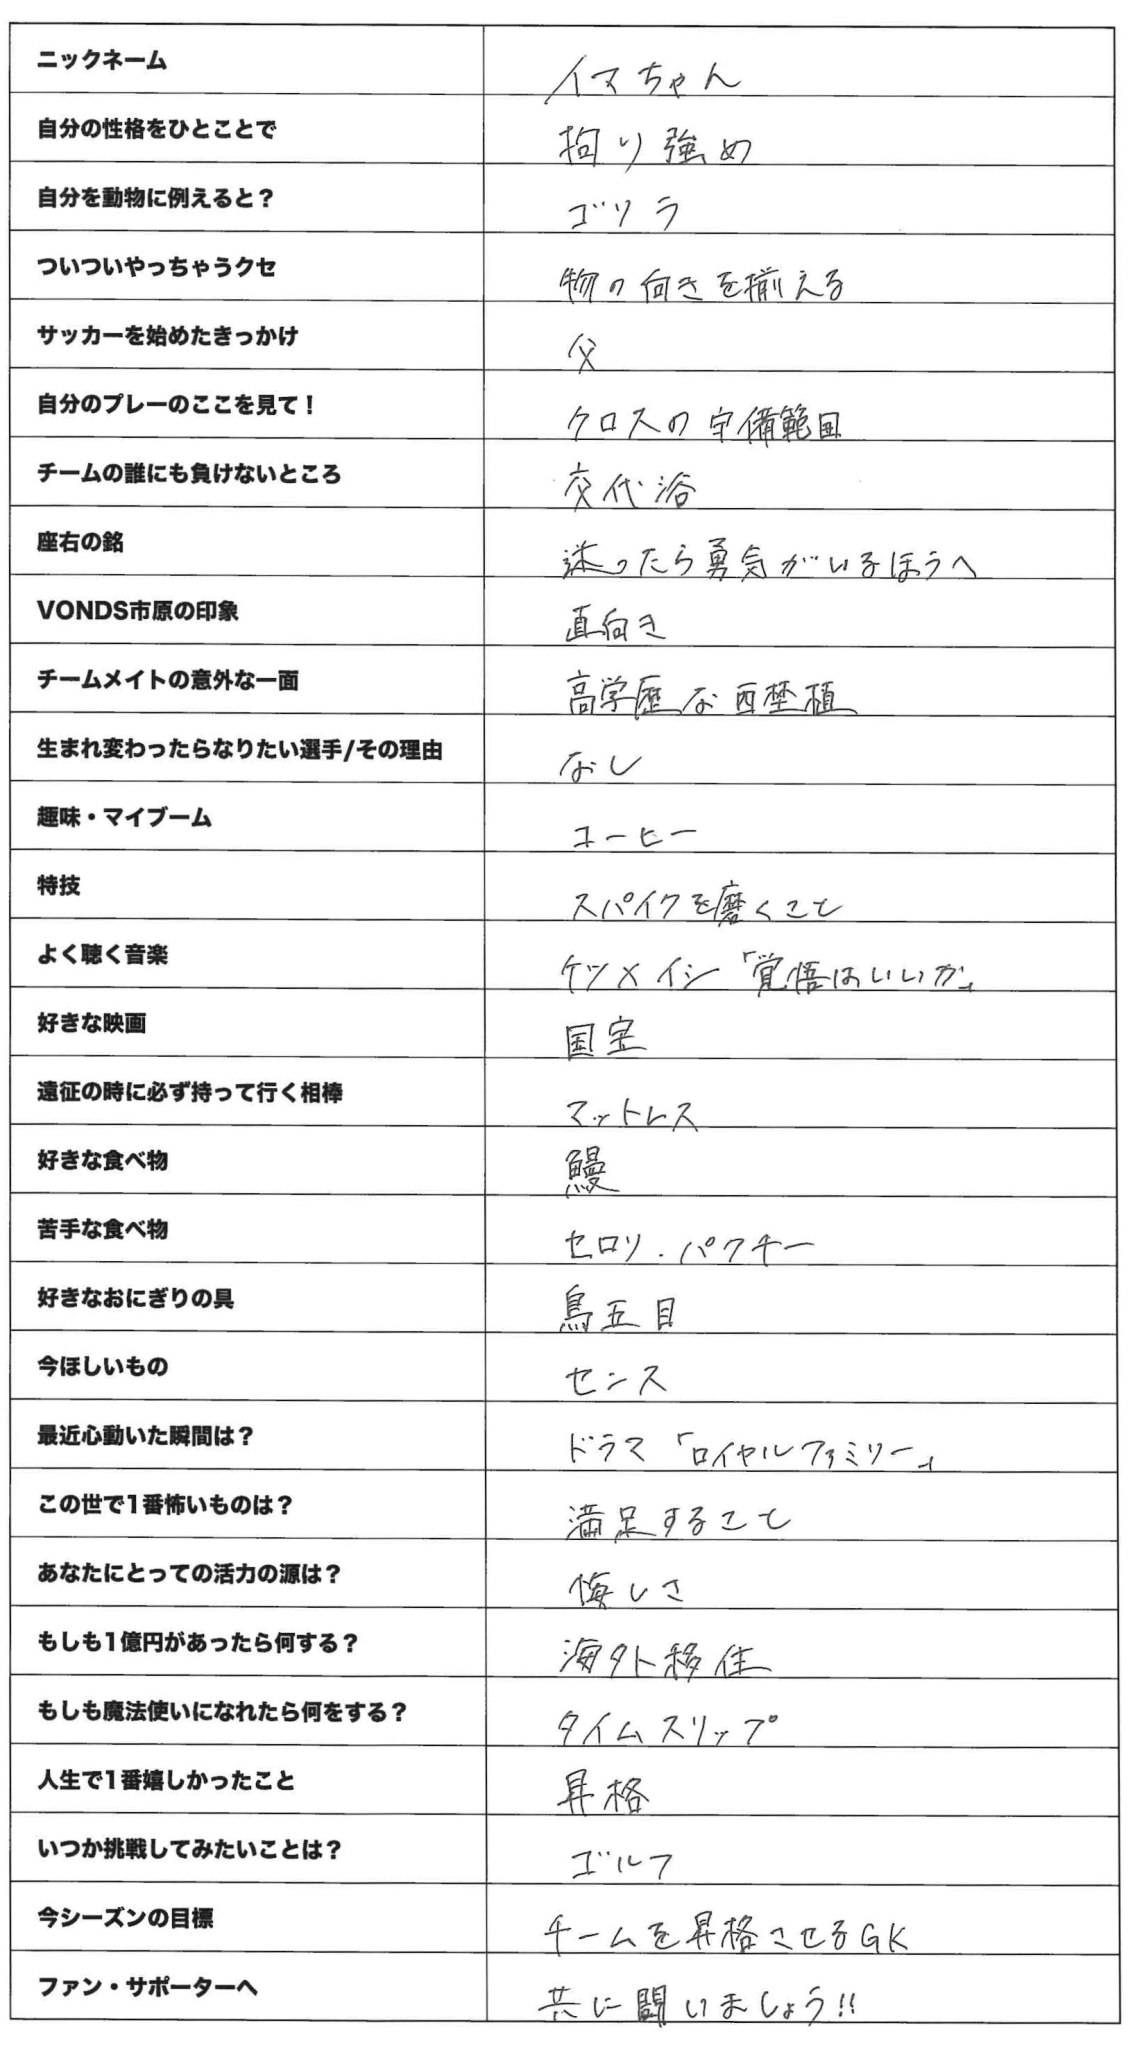 ニックネーム
イマちゃん
自分の性格をひとことで
拘り強め
自分を動物に例えると？
ゴリラ
ついついやっちゃうクセ
物の向きを揃える
サッカーを始めたきっかけ
父
自分のプレーのここを見て！
クロスの守備範囲
チームの誰にも負けないところ
交代浴
座右の銘
迷ったら勇気がいるほうへ
VONDS市原の印象
直向き
チームメイトの意外な一面
高学歴な西埜植
生まれ変わったらなりたい選手/その理由
なし
趣味・マイブーム
コーヒー
特技
スパイクを磨くこと
よく聴く音楽
ケツメイシ「覚悟はいいか」
好きな映画
国宝
遠征の時に必ず持って行く相棒
マットレス
好きな食べ物
鰻
苦手な食べ物
セロリ・パクチー
好きなおにぎりの具
鳥五目
今ほしいもの
センス
最近心動いた瞬間は？
ドラマ「ロイヤルファミリー」
この世で1番怖いものは？
満足すること
あなたにとっての活力の源は？
悔しさ
もしも1億円があったら何する？
海外移住
もしも魔法使いになれたら何をする？
タイムスリップ
人生で1番嬉しかったこと
昇格
いつか挑戦してみたいことは？
ゴルフ
今シーズンの目標
チームを昇格させるGK
ファン・サポーターへ
共に闘いましょう!!